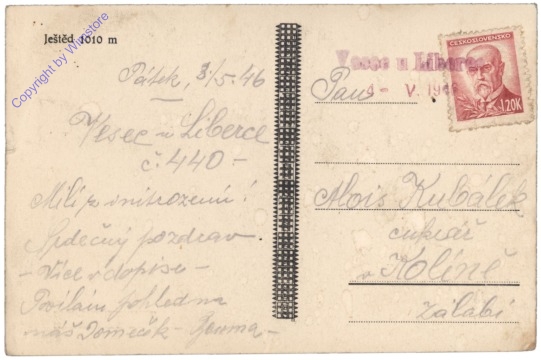 Ještěd 1010 m
Copyright by Winstore
Pátek, 3/5.46
Vesec u Liberce
č. 440.-
Milí
Srdečný pozdrav
- Více v dopise -
Posílám pohled na
náš Domeček -
ČESKOSLOVENSKO
1.20K
Vesec u Liberce
4 - V. 194
Pan
Alois Kubálek
cukrář
v Kolíně
Zálabí